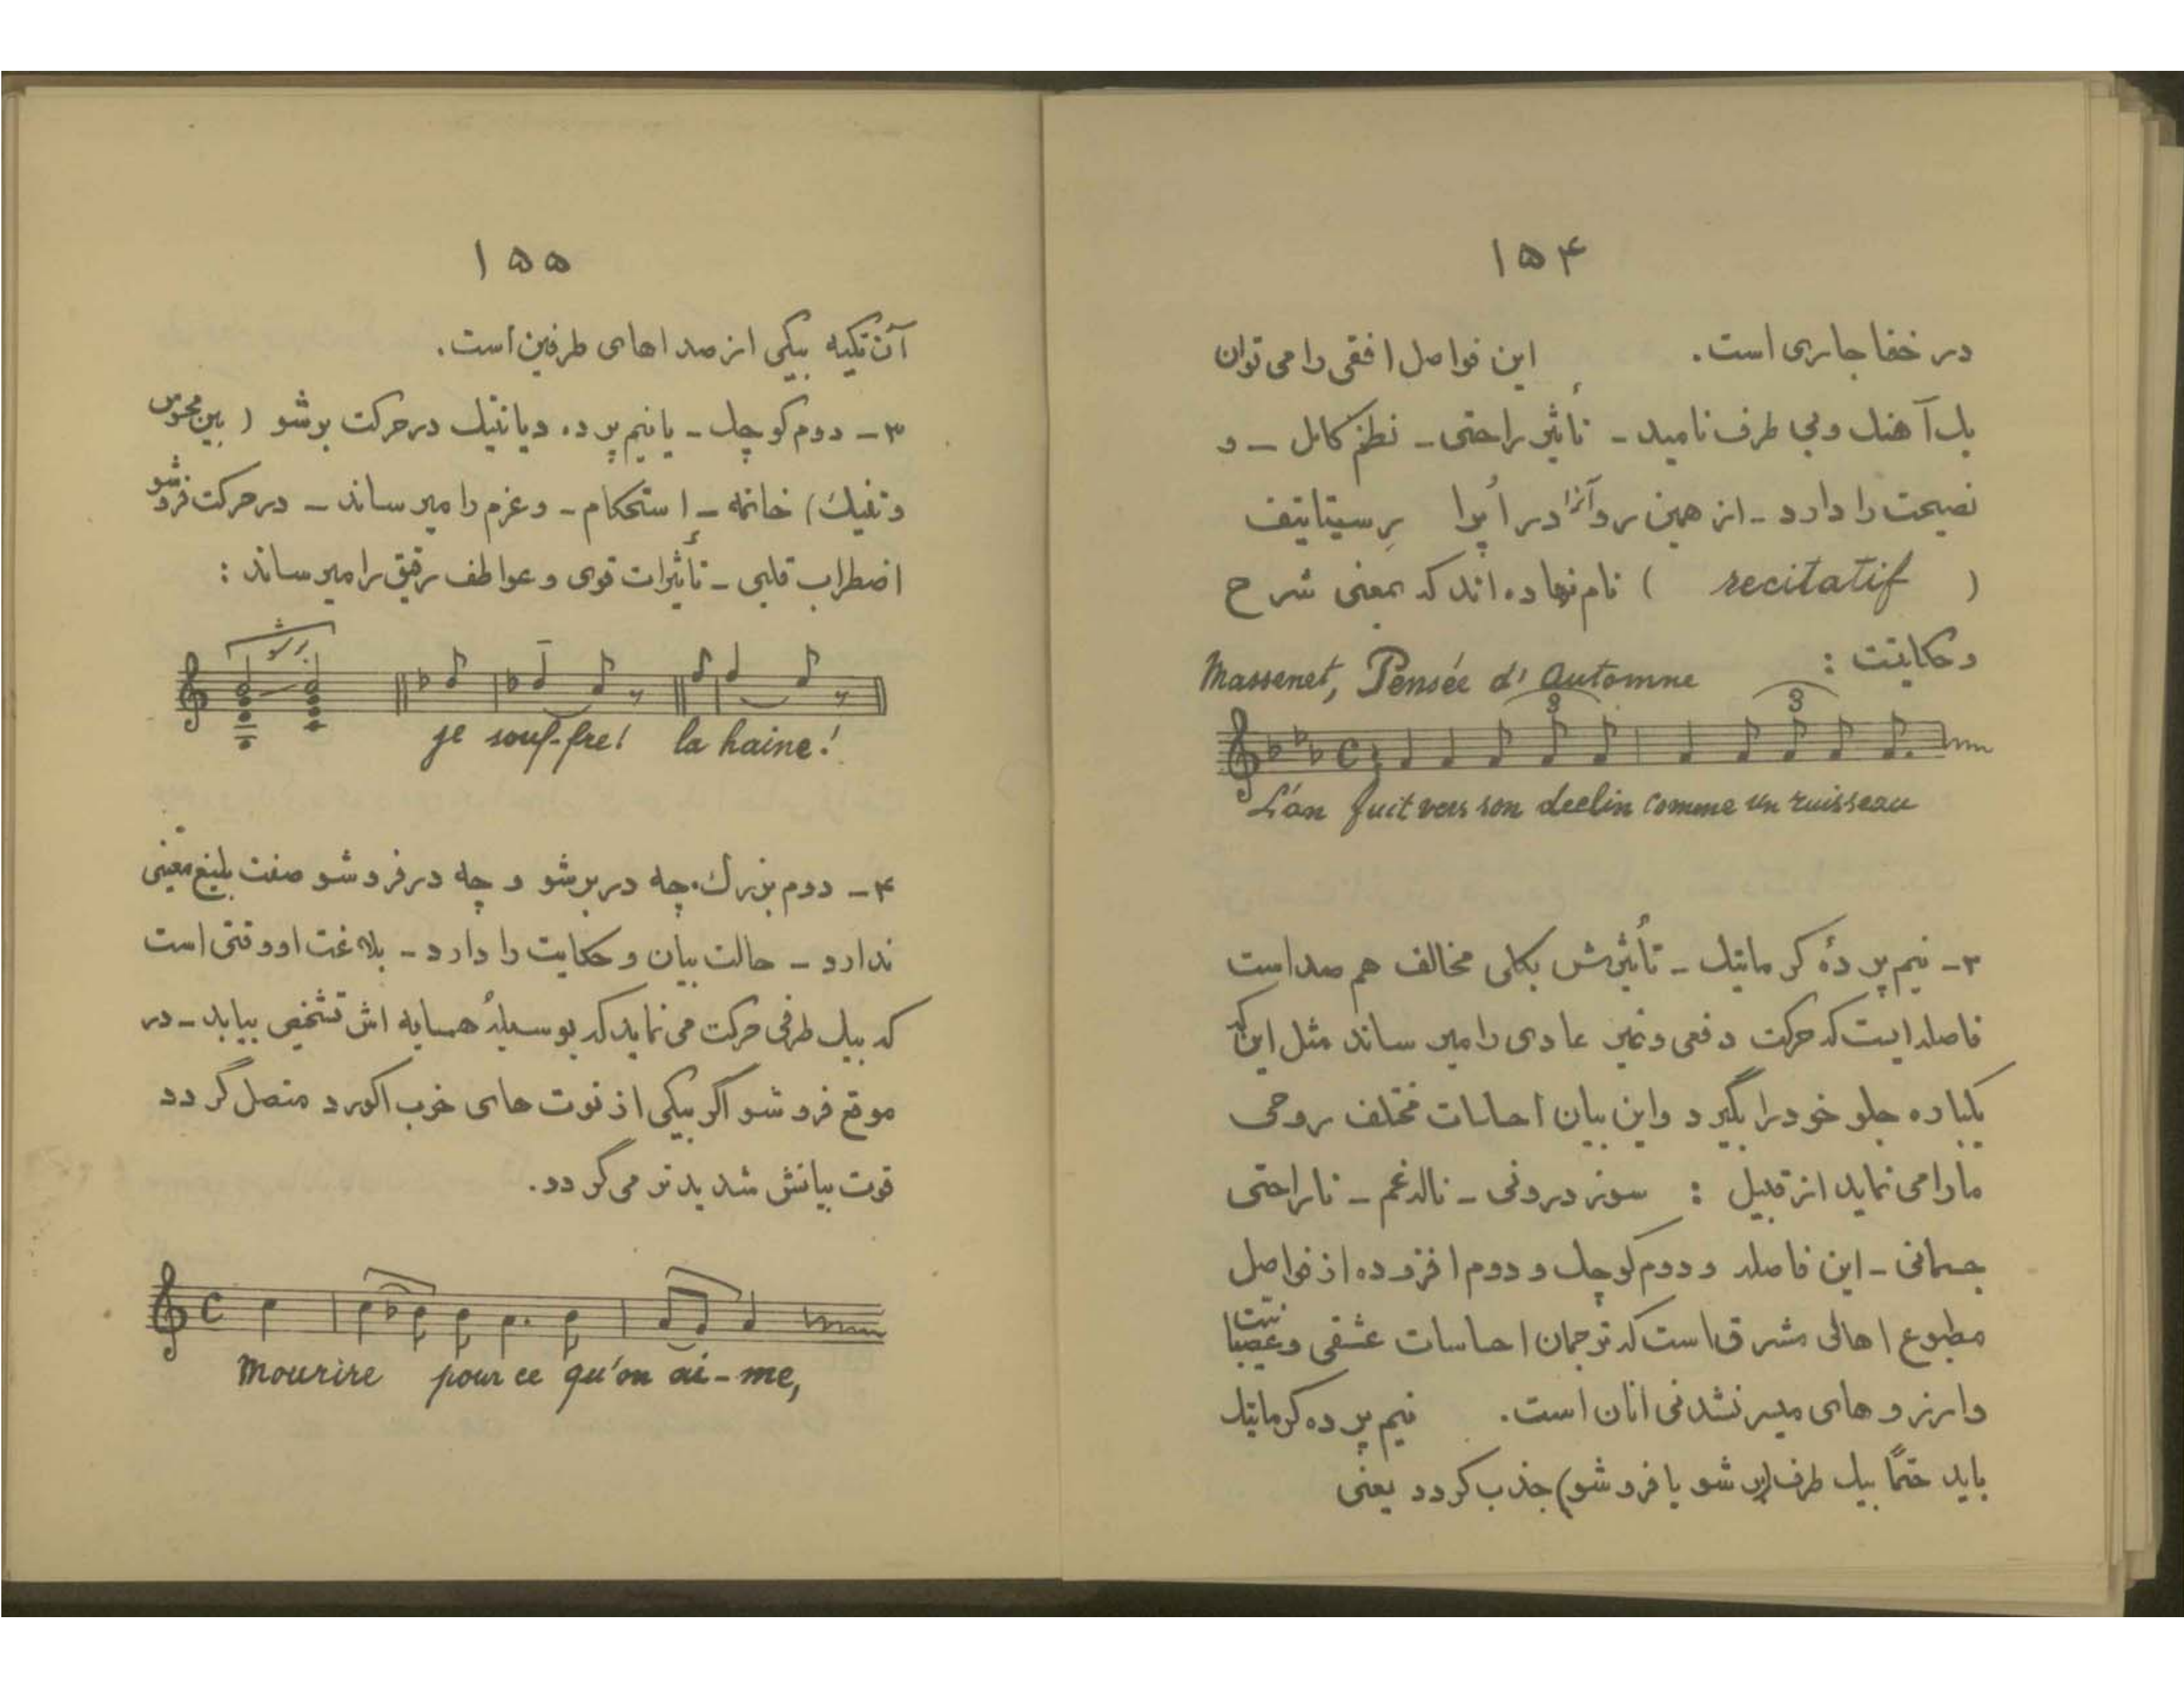 ۱۵۴
در خفا جاری است. این فواصل افقی را می توان
یک آهنگ و بی طرف نامید - تأثیر راحتی - نطق کامل - و
نصیحت را دارد - از همین رو آنرا در اُپرا رِسیتاتیف
( recitatif ) نام نهاده اند که بمعنی شرح
و حکایت :
Massenet, Pensée d' Automne
3 3
L'an fuit vers son declin comme un ruisseau
۲- نیم پردهٔ کرماتیک - تأثیرش بکلی مخالف هم صداست
فاصله ایست که حرکت دفعی و غیر عادی را میرساند مثل این که
یکباره جلو خود را بگیرد و این بیان احساسات مختلف روحی
ما را می نماید از قبیل : سوز درونی - ناله غم - ناراحتی
جسمانی - این فاصله و دوم کوچک و دوم افزوده از فواصل
مطبوع اهالی مشرق است که ترجمان احساسات عشقی و عصبانیت
و ارزوهای میسر نشدنی انان است. نیم پرده کرماتیک
باید حتماً بیک طرف (بر شو یا فرو شو) جذب گردد یعنی
۱۵۵
آن تکیه بیکی از صداهای طرفین است.
۳- دوم کوچک - یا نیم پرده دیاتنیک در حرکت برشو ( بین محسوس
و تنیک) خاتمه - استحکام - و عزم را میرساند - در حرکت فروشو
اضطراب قلبی - تأثیرات قوی و عواطف رقیق را میرساند :
برشو
je souf-fre! la haine!
۴- دوم بزرگ، چه در برشو و چه در فروشو صفت بلیغ معینی
ندارد - حالت بیان و حکایت را دارد - بلاغت او وقتی است
که بیک طرفی حرکت می نماید که بوسیلهٔ همسایه اش تشخیص بیابد - در
موقع فروشو اگر بیکی از نوت های خوب اکورد متصل گردد
قوت بیانش شدید تر می گردد.
Mourire pour ce qu'on ai-me,